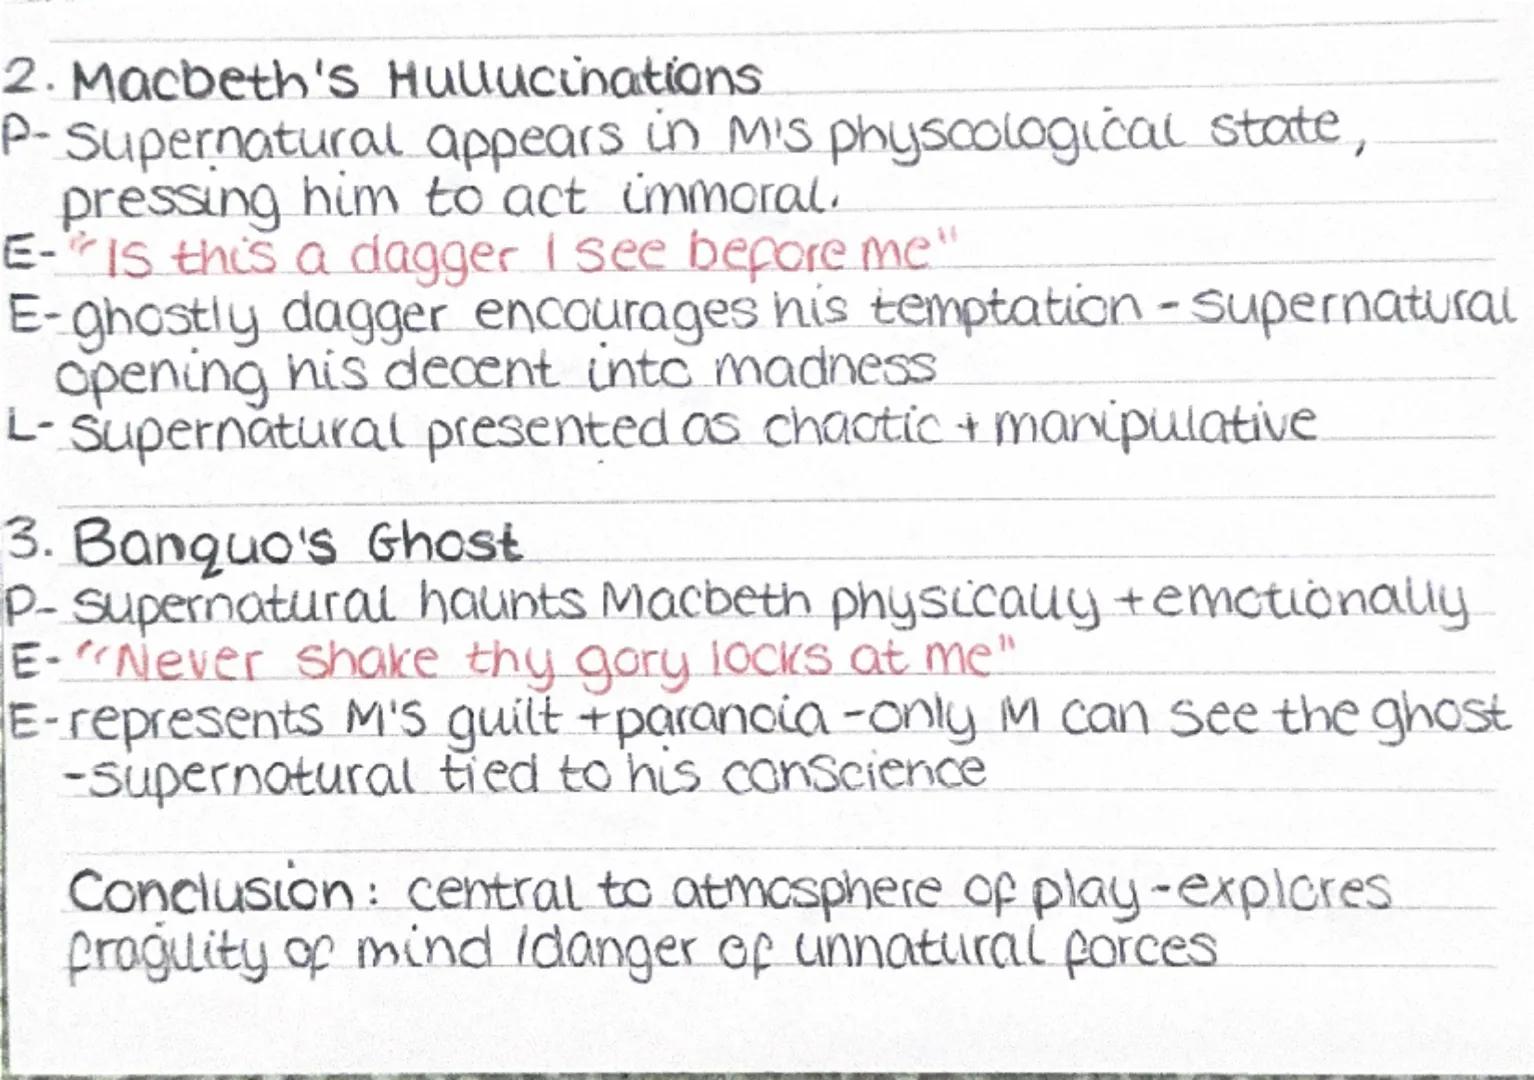 2. Macbeth's Hullucinations
P- Supernatural appears in M's physcological state,
pressing him to act immoral.
E- "Is this a dagger I see before me"
E- ghostly dagger encourages his temptation - supernatural
opening his decent into madness
L- Supernatural presented as chaotic + manipulative
3. Banquo's Ghost
P- supernatural haunts Macbeth physically + emotionally
E- "Never shake thy gory locks at me"
E- represents M's guilt + paranoia - only M can see the ghost
- supernatural tied to his conscience
Conclusion: central to atmosphere of play - explores
fragility of mind / danger of unnatural forces